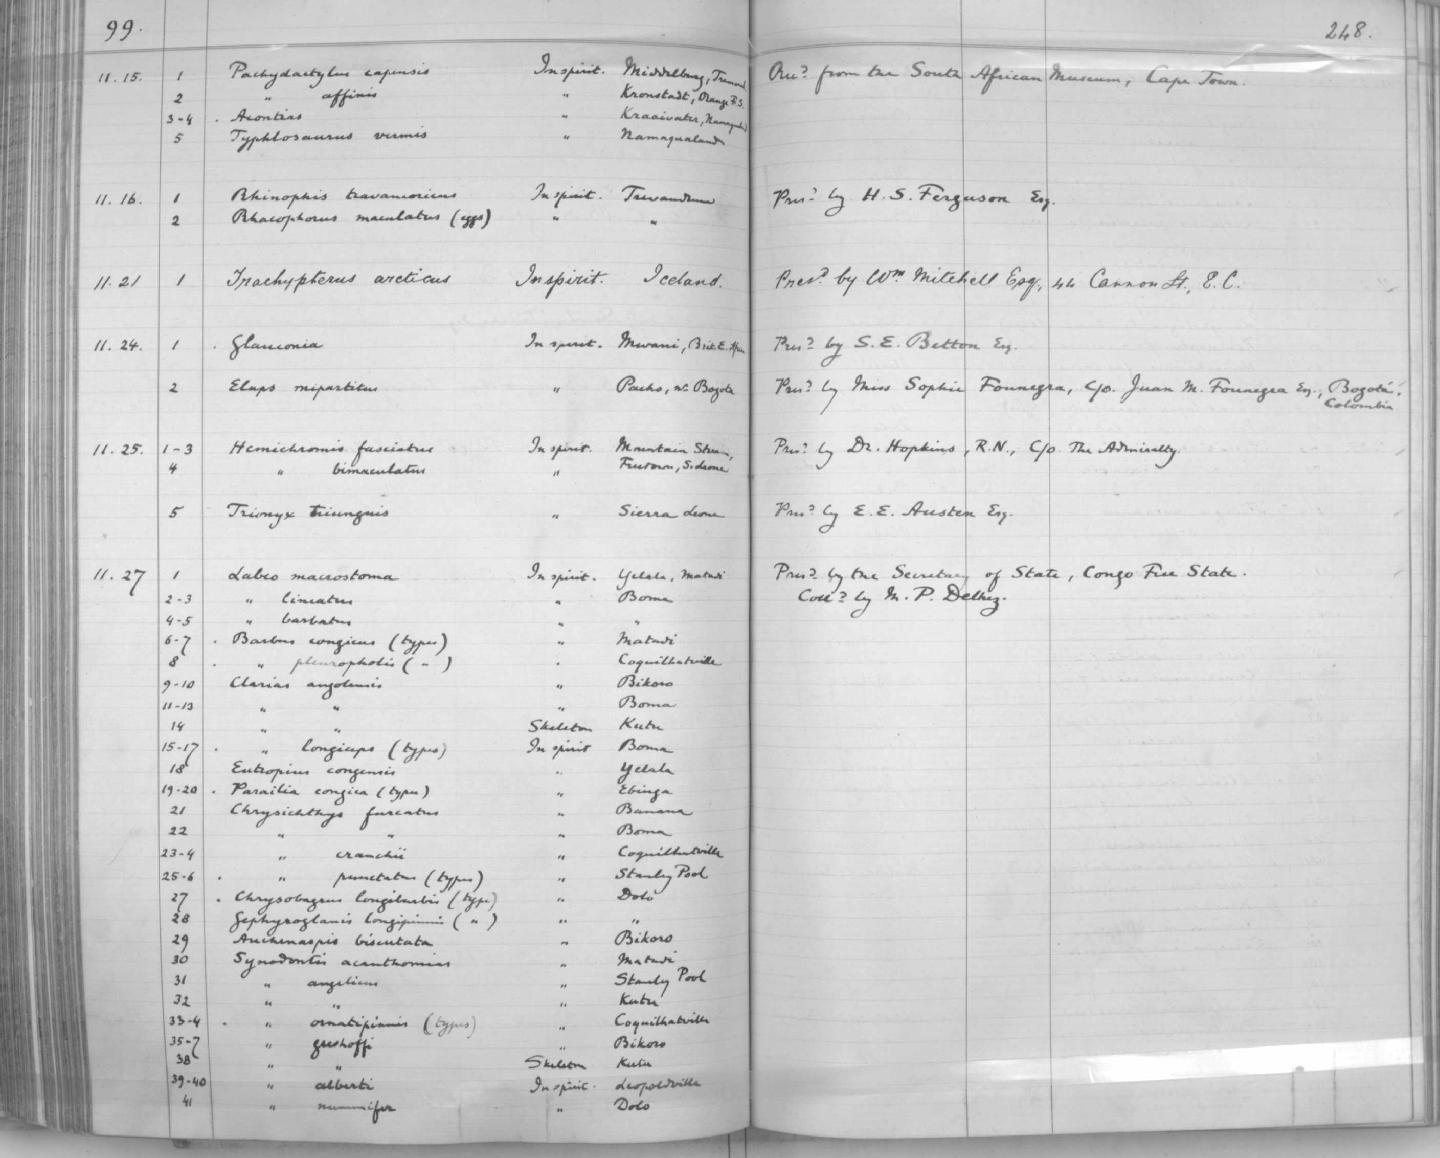 99.
248.
11.15. 1 Pachydactylus capensis In spirit. Middelburg, Rec? from the South African Museum, Cape Town.
2 " affinis " Kronstadt, Orange F.S.
3-4 . Acontias "
5 Typhlosaurus vermis " Namaqualand
11.16. 1 Rhinophis travancoricus In spirit. Trevandrum Pres? by H. S. Ferguson Esq.
2 Rhacophorus maculatus (eggs) " "
11.21 1 Trachypterus arcticus In spirit. Iceland. Pres? by Wm Mitchell Esq., 44 Cannon St., E.C.
11.24. 1 . Glauconia In spirit. Mwani, Brit. E. Afr. Pres? by S. E. Betton Esq.
2 Elaps mipartitus " Pacho, nr Bogota Pres? by Miss Sophie Founegra, c/o. Juan M. Founegra Esq., Bogotá,
Colombia
11.25. 1-3 Hemichromis fasciatus In spirit. Mountain Stream, Pres? by Dr. Hopkins, R.N., c/o The Admiralty.
4 " bimaculatus " Freetown, S. Leone
5 Trionyx triunguis " Sierra Leone Pres? by E. E. Austen Esq.
11.27 1 Labeo macrostoma In spirit. Yelala, Matadi Pres? by the Secretary of State, Congo Free State.
2-3 " lineatus " Boma Coll? by M. P. Delhez.
4-5 " barbatus " "
6-7 . Barbus congicus (types) " Matadi
8 . " pleuropholis ( " ) . Coquilhatville
9-10 Clarias angolensis " Bikoro
11-13 " " " Boma
14 " " Skeleton Kutu
15-17 . " longiceps (types) In spirit Boma
18 Eutropius congensis " Yelala
19-20 . Parailia congica (types) " Ebinga
21 Chrysichthys furcatus " Banana
22 " " " Boma
23-4 " cranchii " Coquilhatville
25-6 . " punctatus (types) " Stanley Pool
27 . Chrysobagrus longibarbis (type) " Dolo
28 Gephyroglanis longipinnis ( " ) " "
29 Auchenaspis biscutata " Bikoro
30 Synodontis acanthomias " Matadi
31 " angelicus " Stanley Pool
32 " " " Kutu
33-4 . " ornatipinnis (types) " Coquilhatville
35-7 " greshoffi " Bikoro
38 " " Skeleton Kutu
39-40 " alberti In spirit. Leopoldville
41 " nummifer " Dolo